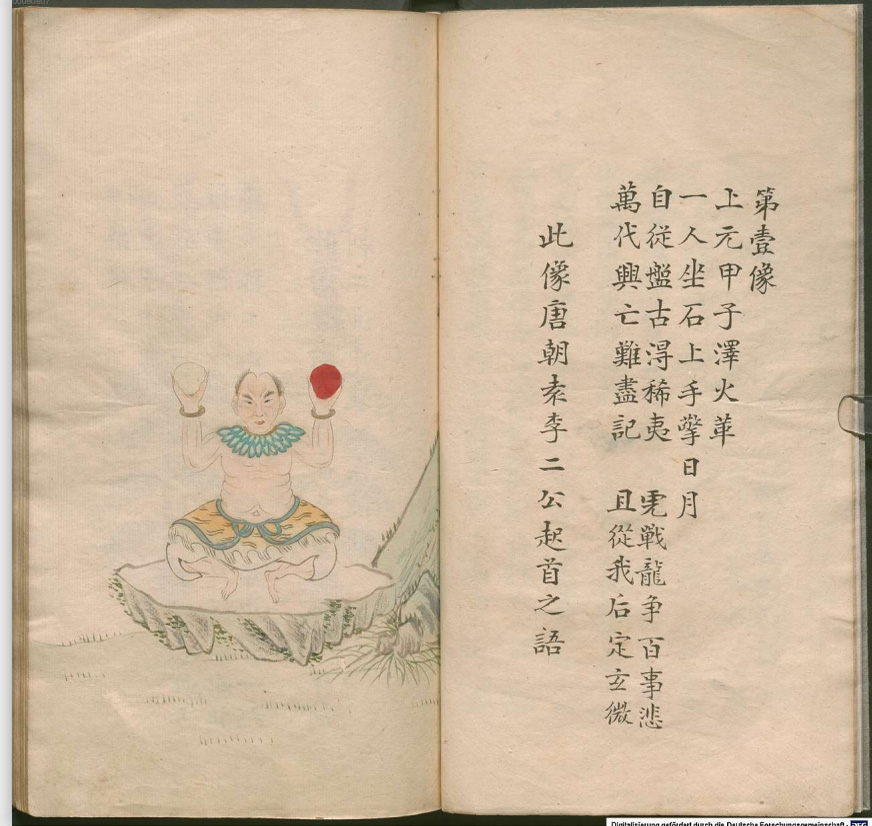 第壹像
上元甲子澤火革
一人坐石上手擎日月
自從盤古得稀夷　虎戰龍争百事悲
萬代興亡難盡記　且從我后定玄微
此像唐朝袁李二公起首之語
Digitalisierung gefördert durch die Deutsche Forschungsgemeinschaft - DFG